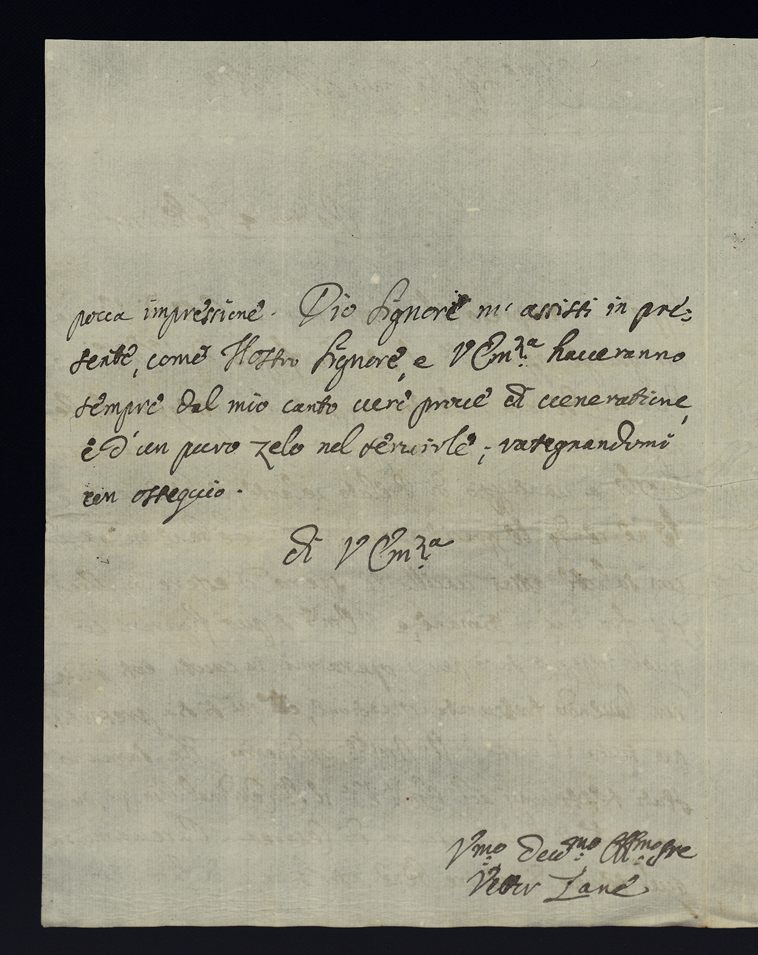 pocca impressione. Dio Signore m'assisti in pre=
sente, come Nostro Signore, e V Em:za haueranno
sempre dal mio canto uere proue di ueneratione,
e d'un puro zelo nel seruirle; rasegnandomi
con ossequio.
di V Em:za
Vmo Deumo
Zane